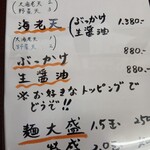 大海老天 2
野菜天 3
海老天
ぶっかけ
生醤油
1.380-
大海老天
野菜天
ぶっかけ 880-
生醤油 880-
※お好きなトッピングで
どうぞ!!
麺大盛 1.5玉 250